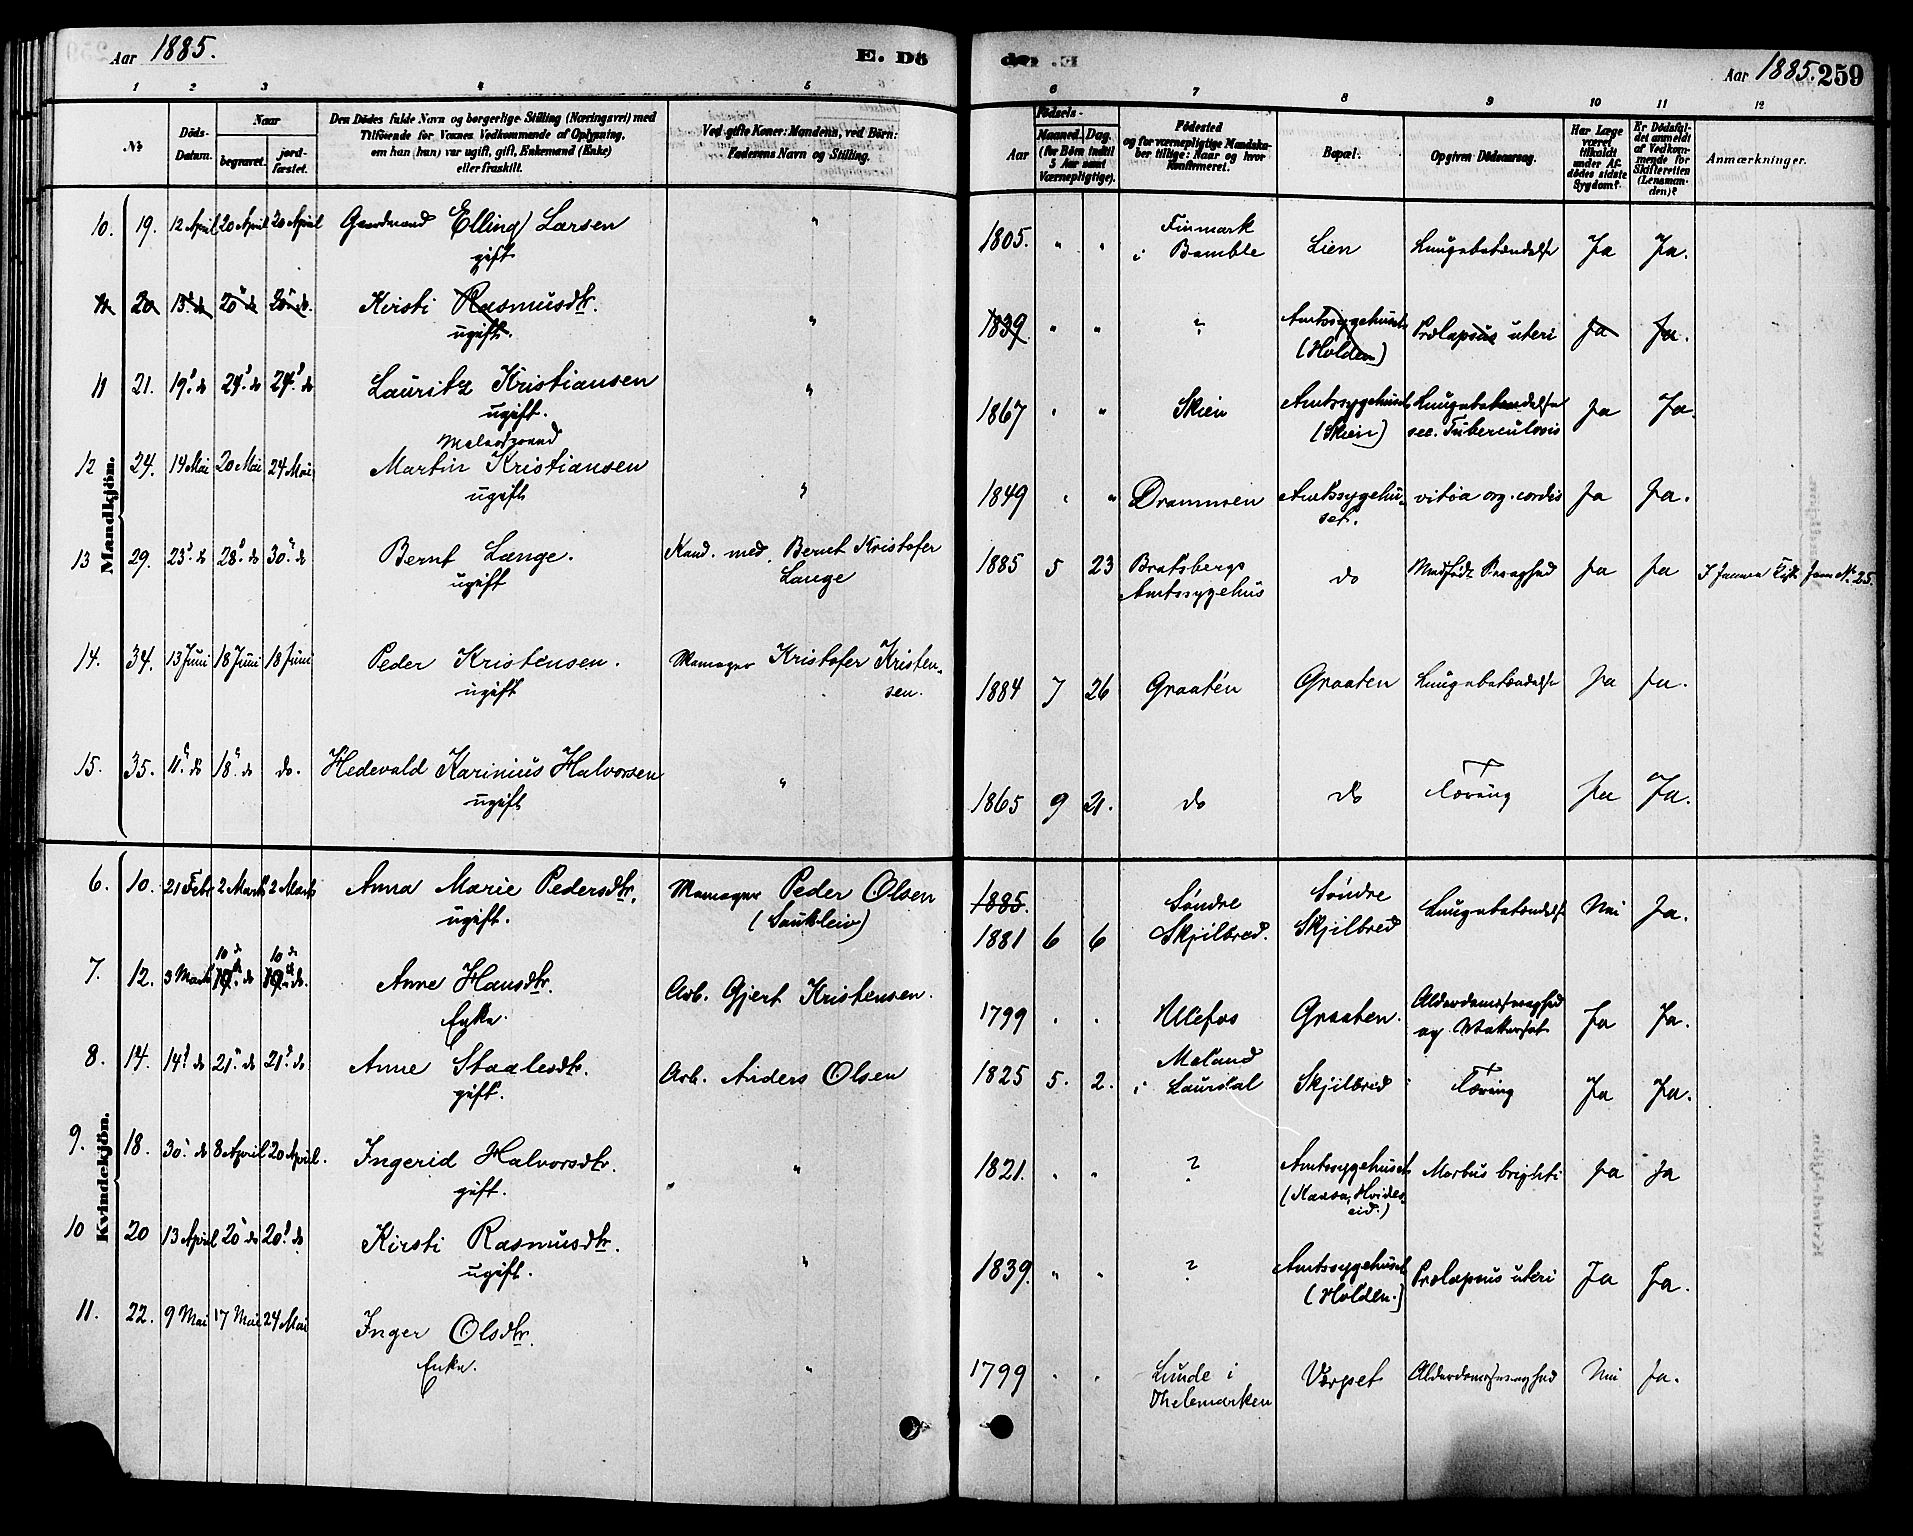 Aar 1885.
E. Dö
Aar 1885. 259
1 2 3 4 5
6 7 8 9 10 11 12
No
Döds-Datum.
Naar
begravet.
jord-fæstet.
Den Dödes fulde Navn og borgerlige Stilling (Næringsvei) med
Tilföiende for Voxnes Vedkommende af Oplysning,
om han (hun) var ugift, gift, Enkemand (Enke)
eller fraskilt.
Ved gifte Koner: Mandens, ved Börn:
Faderens Navn og Stilling.
Födsels-
Aar
Maaned. Dag.
(for Börn indtil
5 Aar samt
Værnepligtige).
Födested
og for værnepligtige Mandska-
ber tillige: Naar og hvor
konfirmeret.
Bopæl.
Opgiven Dödsaarsag.
Har Læge
været
tilkaldt
under Af-
dödes sidste
Sygdom?
Er Dödsfal-
det anmeldt
af Vedkom-
mende for
Skifteretten
(Lensman-
den)?
Anmærkninger.
Mandkjön.
10. 19. 12 April 20 April 20 April Gaardmand Elling Larsen " 1805. " " Finmark Lien Lungebetændelse Ja Ja.
gift. i Bamble
11 20 13de do 20 do 20 do. Kirsti Rasmusdtr. " 1839. " " ? Amtssygehuset Prolapsus uteri Ja Ja.
ugift. (Holden)
11 21. 19 do 24 do 24 do Lauritz Kristiansen " 1867 " " Skien Amtssygehuset Lungebetændelse Ja Ja.
ugift. (Skien) sec. Tuberculosis
12 24. 14 Mai 20 Mai 24 Mai Martin Kristiansen " 1849 " " Drammen Amtssygehu- vitia org. cordis Ja Ja.
ugift set.
13 29. 23 do 28 do 30 do Bernt Lange. Kand. med. Bernt Kristofer 1885 5 23 Bratsbergs do Medfødt Svaghed Ja Ja
ugift Lange Amtssygehus
14. 34. 13 Juni 18 Juni 18 Juni Peder Kristensen. Kristofer Kristen- 1884 7 26 Graatén Graaten Lungebetændelse Ja Ja.
ugift sen.
15. 35. 11 do 18 do do. Hedevald Karinius Halvorsen " 1865 9 21. do do Tæring Ja Ja.
ugift
Kvindekjön.
6. 10. 21 Febr 2 Marts 2 Marts Anna Marie Pedersdtr. Peder Olsen 1885. Søndre Søndre Lungebetændelse Nei Ja.
ugift. 1881 6 6 Skjilbred. Skjilbred
10 do 10 do
7. 12. 3 Marts 19 do 19 do. Anne Hansdtr. Arb. Gjert Kristensen. 1799 " " Ulefos Graaten. Alderdomssvaghed Ja Ja.
Enke. og Vattersot
8. 14. 14 do 21 do 21 do Anne Staalesdtr. Arb. Anders Olsen 1825 5. 2. Meland Skjilbred Tæring Ja Ja.
gift. i Laurdal
9. 18. 30 do 8 April 20 April. Ingerid Halvorsdtr. " 1821. " " ? Amtssygehuset Morbus brighti Ja Ja
gift. Hvides-
eid.)
10 20 13 April 20 do 20 do Kirsti Rasmusdtr. " 1839. " " ? Amtssygehuset Prolapsus uteri Ja Ja.
ugift. (Holden.)
11. 22. 9 Mai 17 Mai 24 Mai Inger Olsdtr. " 1799 " " Lunde i Værpset Alderdomssvaghed Nei Ja.
Enke. Thelemarken